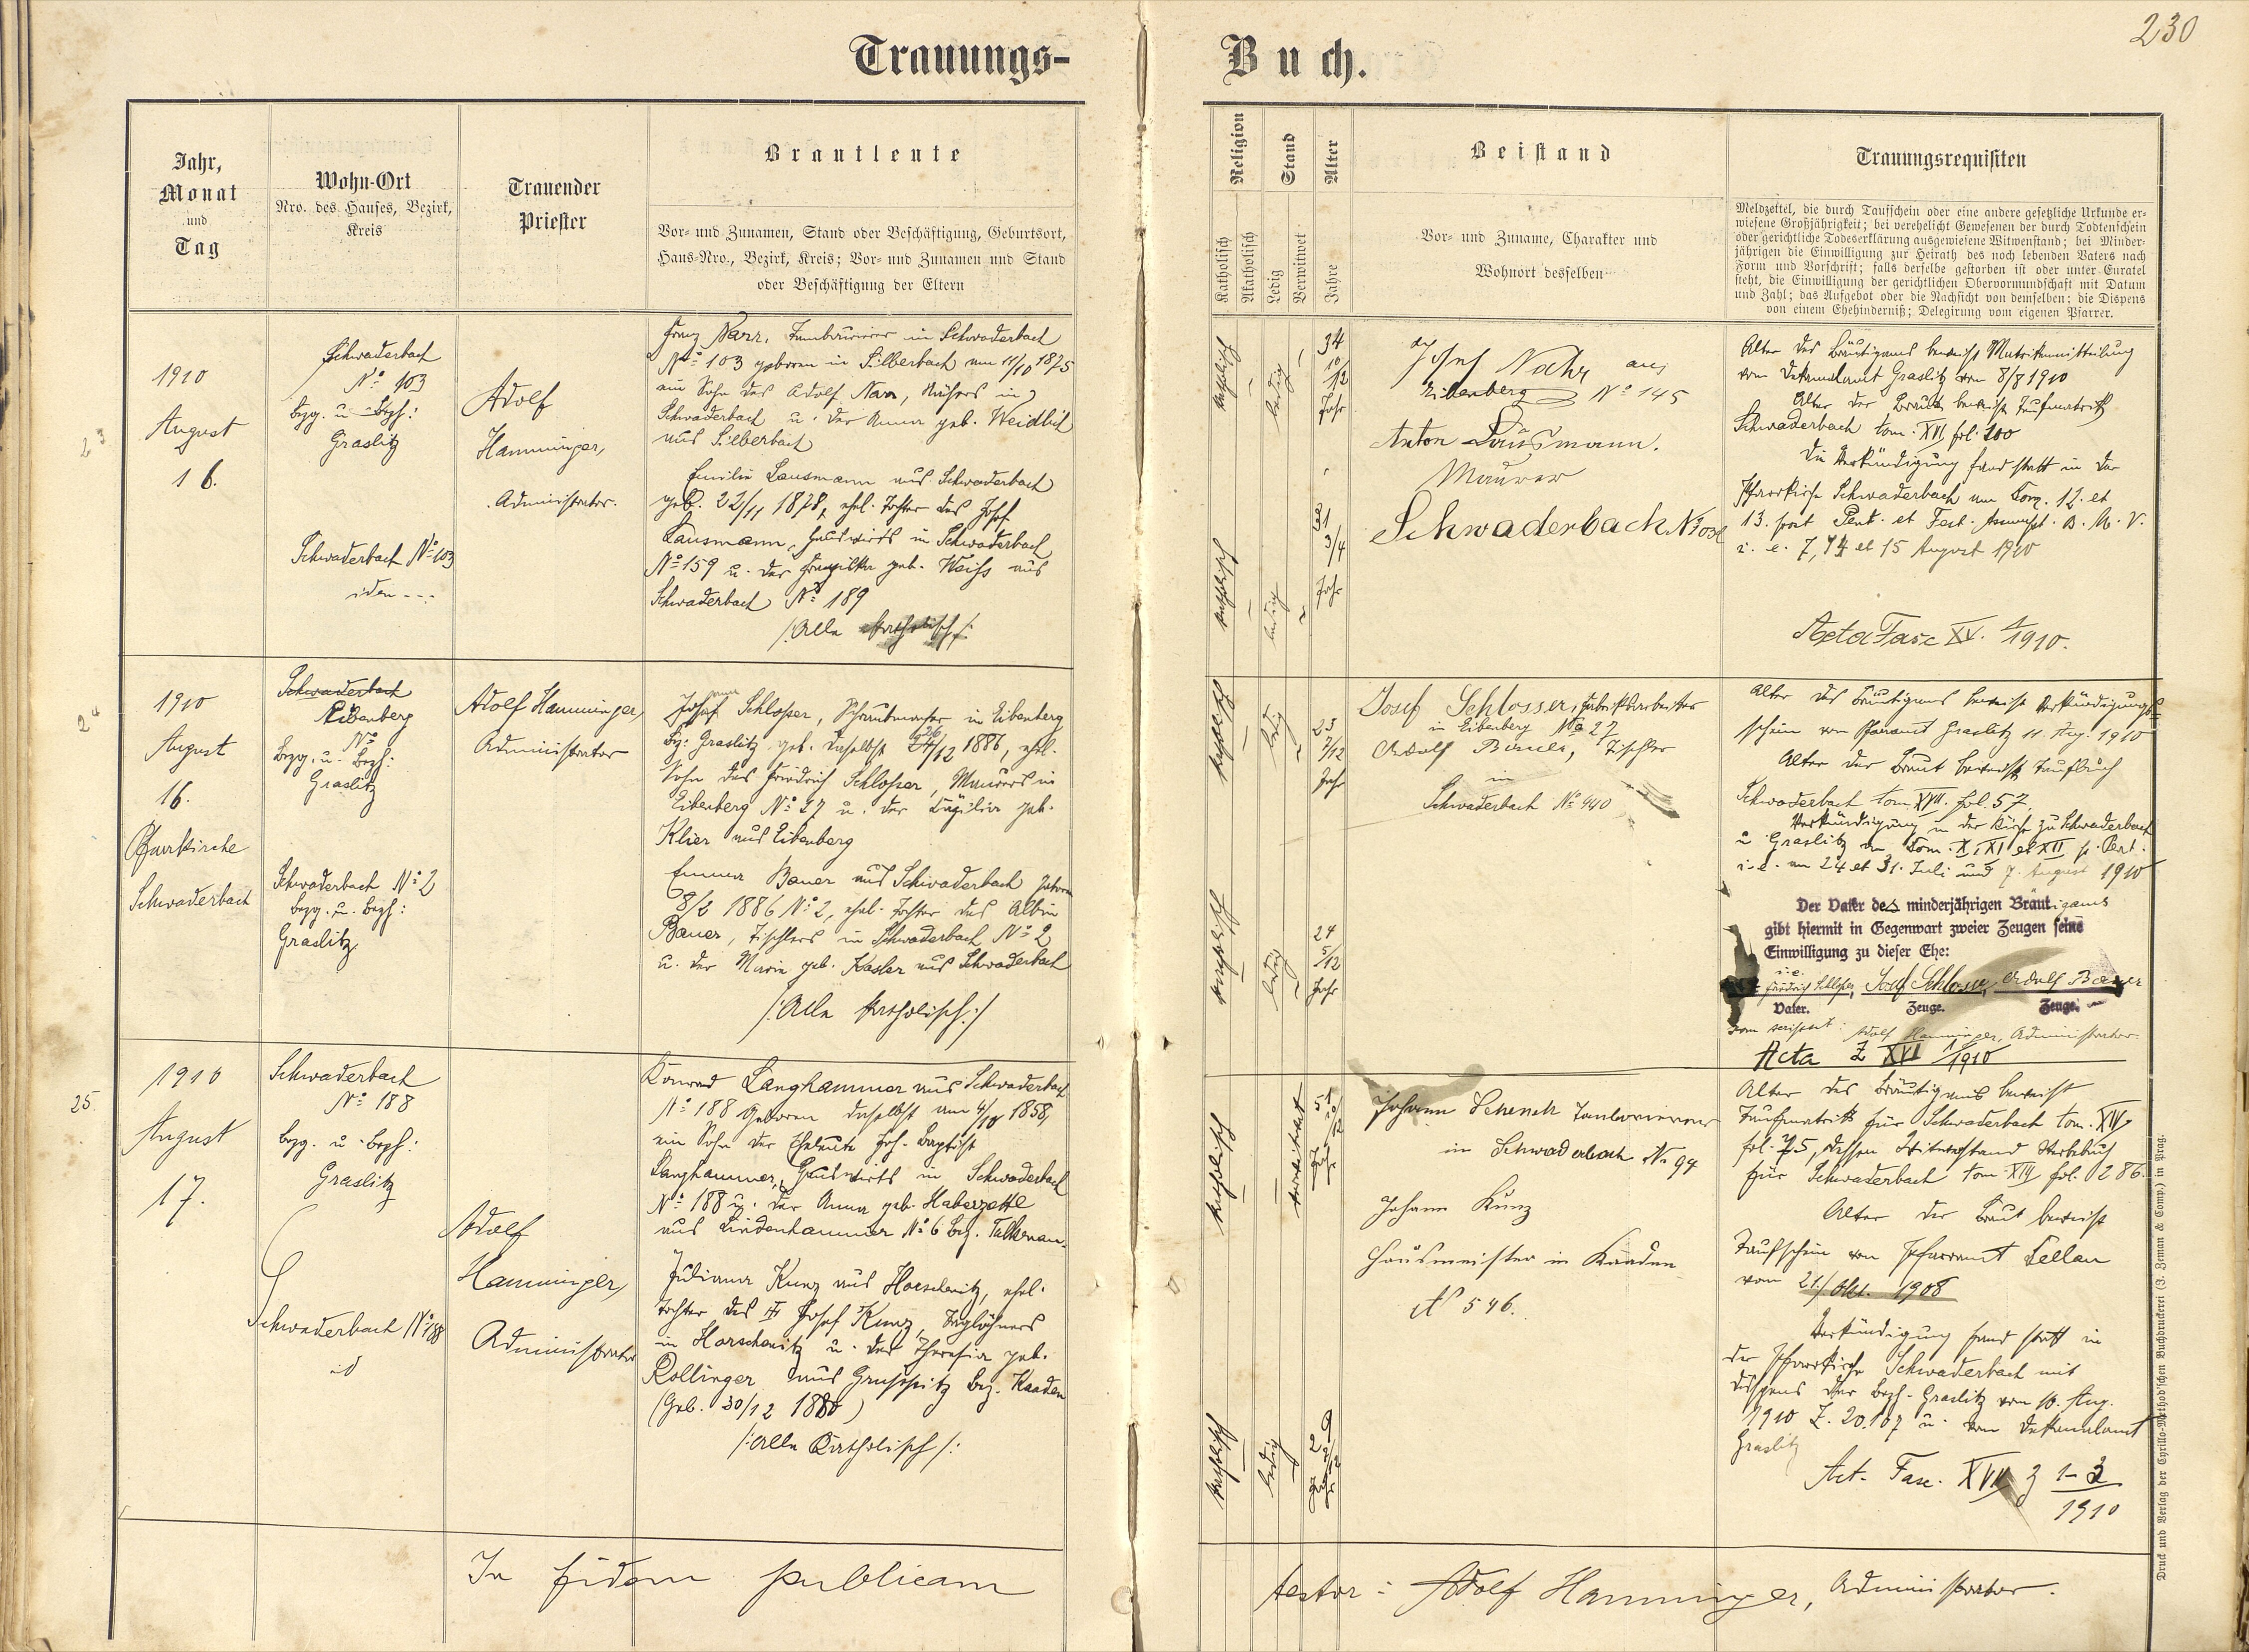 230
Trauungs-
Buch.
Jahr,
Monat
und
Tag
Wohn-Ort
Nro. des Hauses, Bezirk,
Kreis
Trauender
Priester
Brautleute
Vor- und Zunamen, Stand oder Beschäftigung, Geburtsort,
Haus-Nro., Bezirk, Kreis; Vor- und Zunamen und Stand
oder Beschäftigung der Eltern
Religion
Katholisch
Akatholisch
Stand
Ledig
Verwitwet
Alter
Jahre
Beistand
Vor- und Zuname, Charakter und
Wohnort desselben
Trauungsrequisiten
Meldzettel, die durch Taufschein oder eine andere gesetzliche Urkunde er-
wiesene Großjährigkeit; bei verehelicht Gewesenen der durch Todtenschein
oder gerichtliche Todeserklärung ausgewiesene Witwenstand; bei Minder-
jährigen die Einwilligung zur Heirath des noch lebenden Vaters nach
Form und Vorschrift; falls derselbe gestorben ist oder unter Curatel
steht, die Einwilligung der gerichtlichen Obervormundschaft mit Datum
und Zahl; das Aufgebot oder die Nachsicht von demselben; die Dispens
von einem Ehehinderniß; Delegirung vom eigenen Pfarrer.
23
1910
August
16.
Schwaderbach
No 103
Bezg. u. Bezh:
Graslitz
Schwaderbach No 103
Adolf
Hamminger,
Administrator.
Franz Narr, in Schwaderbach
No 103 geboren in Silberbach am 11/10 1875
ein Sohn des Adolf Narr, in
Schwaderbach u. der Anna geb. Weidlich
aus Silberbach
Emilie Lausmann aus Schwaderbach
geb. 22/11 1878, ehel. Tochter des Josef
Lausmann, Hauswirts in Schwaderbach
No 159 u. der Franziska geb. Weiss aus
Schwaderbach No 189
/:Alle katholisch:/
katholisch
ledig
34
10/12
Jahr
katholisch
ledig
31
3/4
Jahr
Josef Nahr aus
Eibenberg No 145
Anton Lausmann.
Maurer
Schwaderbach
Alter des Bräutigams beweist Matrikenmitteilung
vom Dekanalamt Graslitz vom 8/8 1910
Alter der Braut beweist Taufmatrik
Schwaderbach tom. XVI fol. 200
Die Verkündigung fand statt in der
Pfarrkirche Schwaderbach am Dom. 12. et
13. post Pent. et Fest. Assumpt. B. M. V.
i. e. 7, 14 et 15 August 1910
Acta Fasc XV. 1/1910.
24
1910
August
16.
Pfarrkirche
Schwaderbach
Schwaderbach
Eibenberg
No
Bezg. u. Bezh:
Graslitz
Schwaderbach No 2
Bezg. u. Bezh:
Graslitz
Adolf Hamminger,
Administrator
Schlosser, in Eibenberg
Bz: Graslitz geb. daselbst 1886, ehel.
Sohn des Friedrich Schlosser, Maurers in
Eibenberg No 27 u. der Cäzilia geb.
Klier aus Eibenberg
Emma Bauer aus Schwaderbach geboren
8/2 1886 No 2, ehel. Tochter des Albin
Bauer, Tischlers in Schwaderbach No 2
u. der Maria geb. Kasler aus Schwaderbach
/:Alle katholisch:/
katholisch
ledig
23
7/12
Jahr
katholisch
ledig
24
5/12
Jahr
Josef Schlosser, Fabriksarbeiter
in Eibenberg No 27
Adolf Bauer, Tischler
in
Schwaderbach No 440
Alter des Bräutigams beweist Verkündigungs-
schein vom Pfarramt Graslitz 11. Aug. 1910
Alter der Braut beweist Taufbuch
Schwaderbach tom. XVII. fol. 57.
Verkündigung in der Kirche zu Schwaderbach
u. Graslitz am Dom. X, XI et XII p. Pent.
i. e. am 24 et 31. Juli und 7. August 1910
Der Vater des minderjährigen Bräutigams
gibt hiermit in Gegenwart zweier Zeugen seine
Einwilligung zu dieser Ehe:
i.e.
Friedrich Schlosser, Josef Schlosser, Adolf Bauer
Vater. Zeuge. Zeuge.
Adolf Hamminger, Administrator
Acta Z XVI 1/1910
25.
1910
August
17.
Schwaderbach
No 188
Bezg. u. Bezh:
Graslitz
Schwaderbach No 188
id
Adolf
Hamminger,
Administrator
Konrad Langhammer aus Schwaderbach
No 188 geboren daselbst am 4/10 1858,
ein Sohn der Eheleute Joh. Baptist
Langhammer, Hauswirts in Schwaderbach
No 188 u. der Anna geb. Haberzettl
aus Lindenhammer No 6 Bez. Falkenau.
Juliana Kunz aus Horschenitz, ehel.
Tochter des Josef Kunz, Taglöhners
in Horschenitz u. der Theresia geb.
Rollinger aus Bez. Kaaden
(Geb. 30/12 1880)
/:Alle Katholisch/:
katholisch
verwitwet
51
10/12
Jahr
katholisch
ledig
29
Jahr
Johann Schenk
in Schwaderbach No 94
Johann Kunz
Hausmeister in Kaaden
No 546.
Alter des Bräutigams beweist
Taufmatrik für Schwaderbach tom. XIV
fol. 75, dessen Witwerstand Sterbebuch
für Schwaderbach tom. XIV fol. 286.
Alter der Braut beweist
Taufschein vom Pfarramt
vom 21/ Okt. 1908
Verkündigung fand statt in
der Pfarrkirche Schwaderbach mit
Dispens der Bezh. Graslitz vom 10. Aug.
1910 Z. 20.107 u. vom Dekanalamt
Graslitz
Act. Fasc. XVII 3 1-3
1910
In fidem publicam
testor: Adolf Hamminger, Administrator.
Druck und Verlag der Cyrillo-Method'schen Buchdruckerei (J. Zeman & Comp.) in Prag.